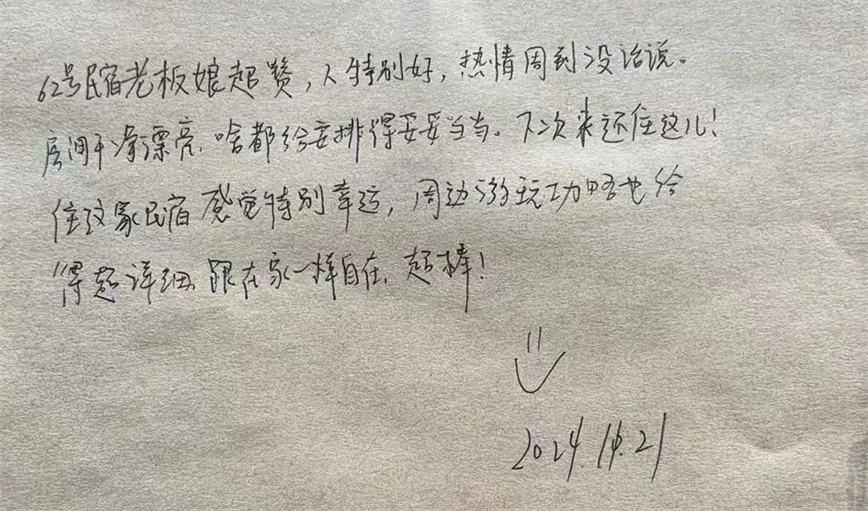 62号民宿老板娘超赞，人特别好，热情周到没治说。
房间干净漂亮，啥都给安排得妥妥当当。下次来还住这儿！
住这家民宿感觉特别幸运，周边游玩功略也给
得超详细，跟在家一样自在，超棒！
2024.11.21